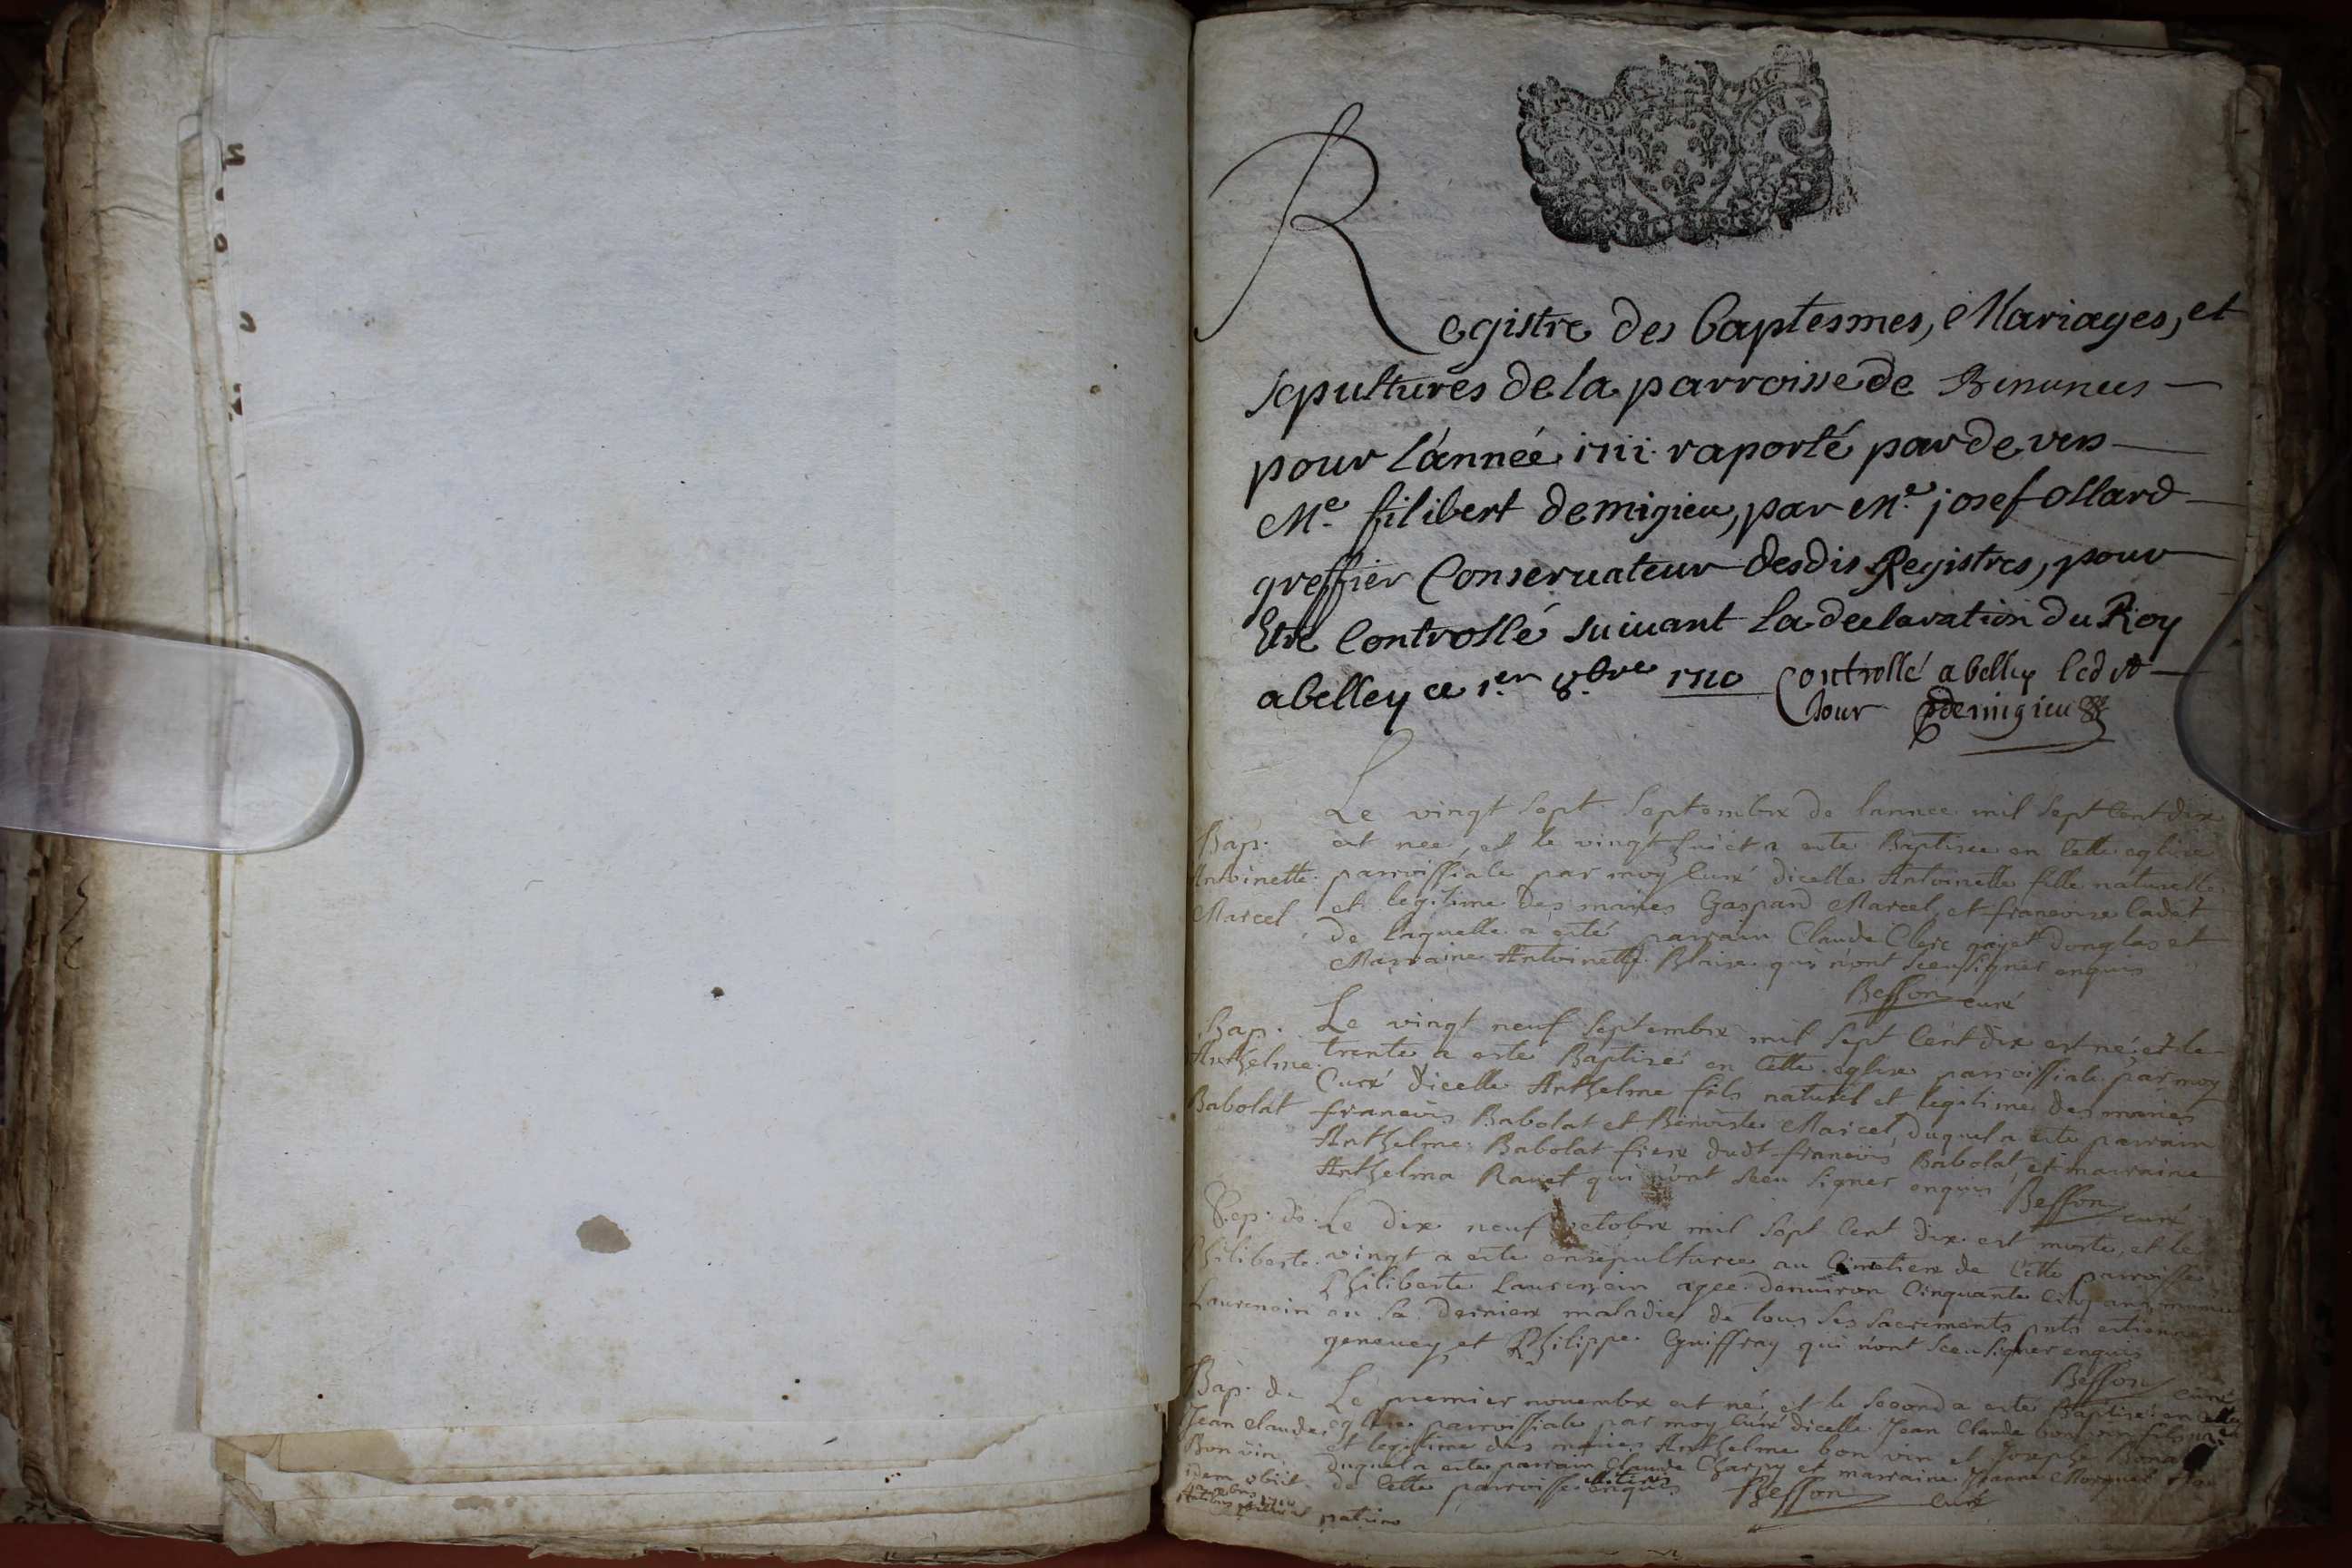 Registre des baptesmes, Mariages, et
sepultures de la parroisse de
pour l'année 1711 raporté par de vers
Me filibert demigieu, par Me josef ollard
greffier Conseruateur desdis Registres, pour
Etre Controllé suiuant la declaration du Roy
a belley ce 1er 8bre 1710 Controllé a belley led
Jour demigieu
Le vingt sept septembre de lannee mil sept cent dix
Bap. est nee, et le vingt huict a este Baptisee en cette eglise
Antoinette parroissiale par moy curé dicelle Antoinette fille naturelle
Marcel et legitime des maries Gaspard Marcel et francoise Cadet
de laquelle a esté parrain Claude Clerc gayet donglas et
Marraine Antoinette Blaise qui n'ont sceu signer enquis
Besson curé
Bap. Le vingt neuf septembre mil sept cent dix est né, et le
Anthelme trente a este Baptisé en cette eglise parroissiale par moy
Curé dicelle Anthelme fils naturel et legitime des maries
Babolat francois Babolat et Benoiste Marcel, duquel a este parrain
Anthelme Babolat frere dudt francois Babolat, et marraine
Anthelma Rauet qui n'ont sceu signer enquis Besson curé
Sep. de Le dix neuf octobre mil sept cent dix est morte, et le
Philiberte vingt a este ensepulturee au Cimetiere de cette parroisse
Philiberte Laurensein agee denuiron Cinquante cinq ans munie
Laurencin en sa derniere maladie de tous ses sacrements pnts estienne
geneuey et Philippe Guiffray qui n'ont sceu signer enquis
Besson curé
Bap. de Le premier nouembre est né et le second a esté Baptisé en cette
Jean Claude eglise parroissiale par moy curé dicelle Jean Claude bon vin fils
Bon vin et legitime des maries Anthelme bon vin et Josephe
idem obiit duquel a este parrain Claude Charpy et marraine Jeanne
de cette parroisse illiteres enquis Besson curé